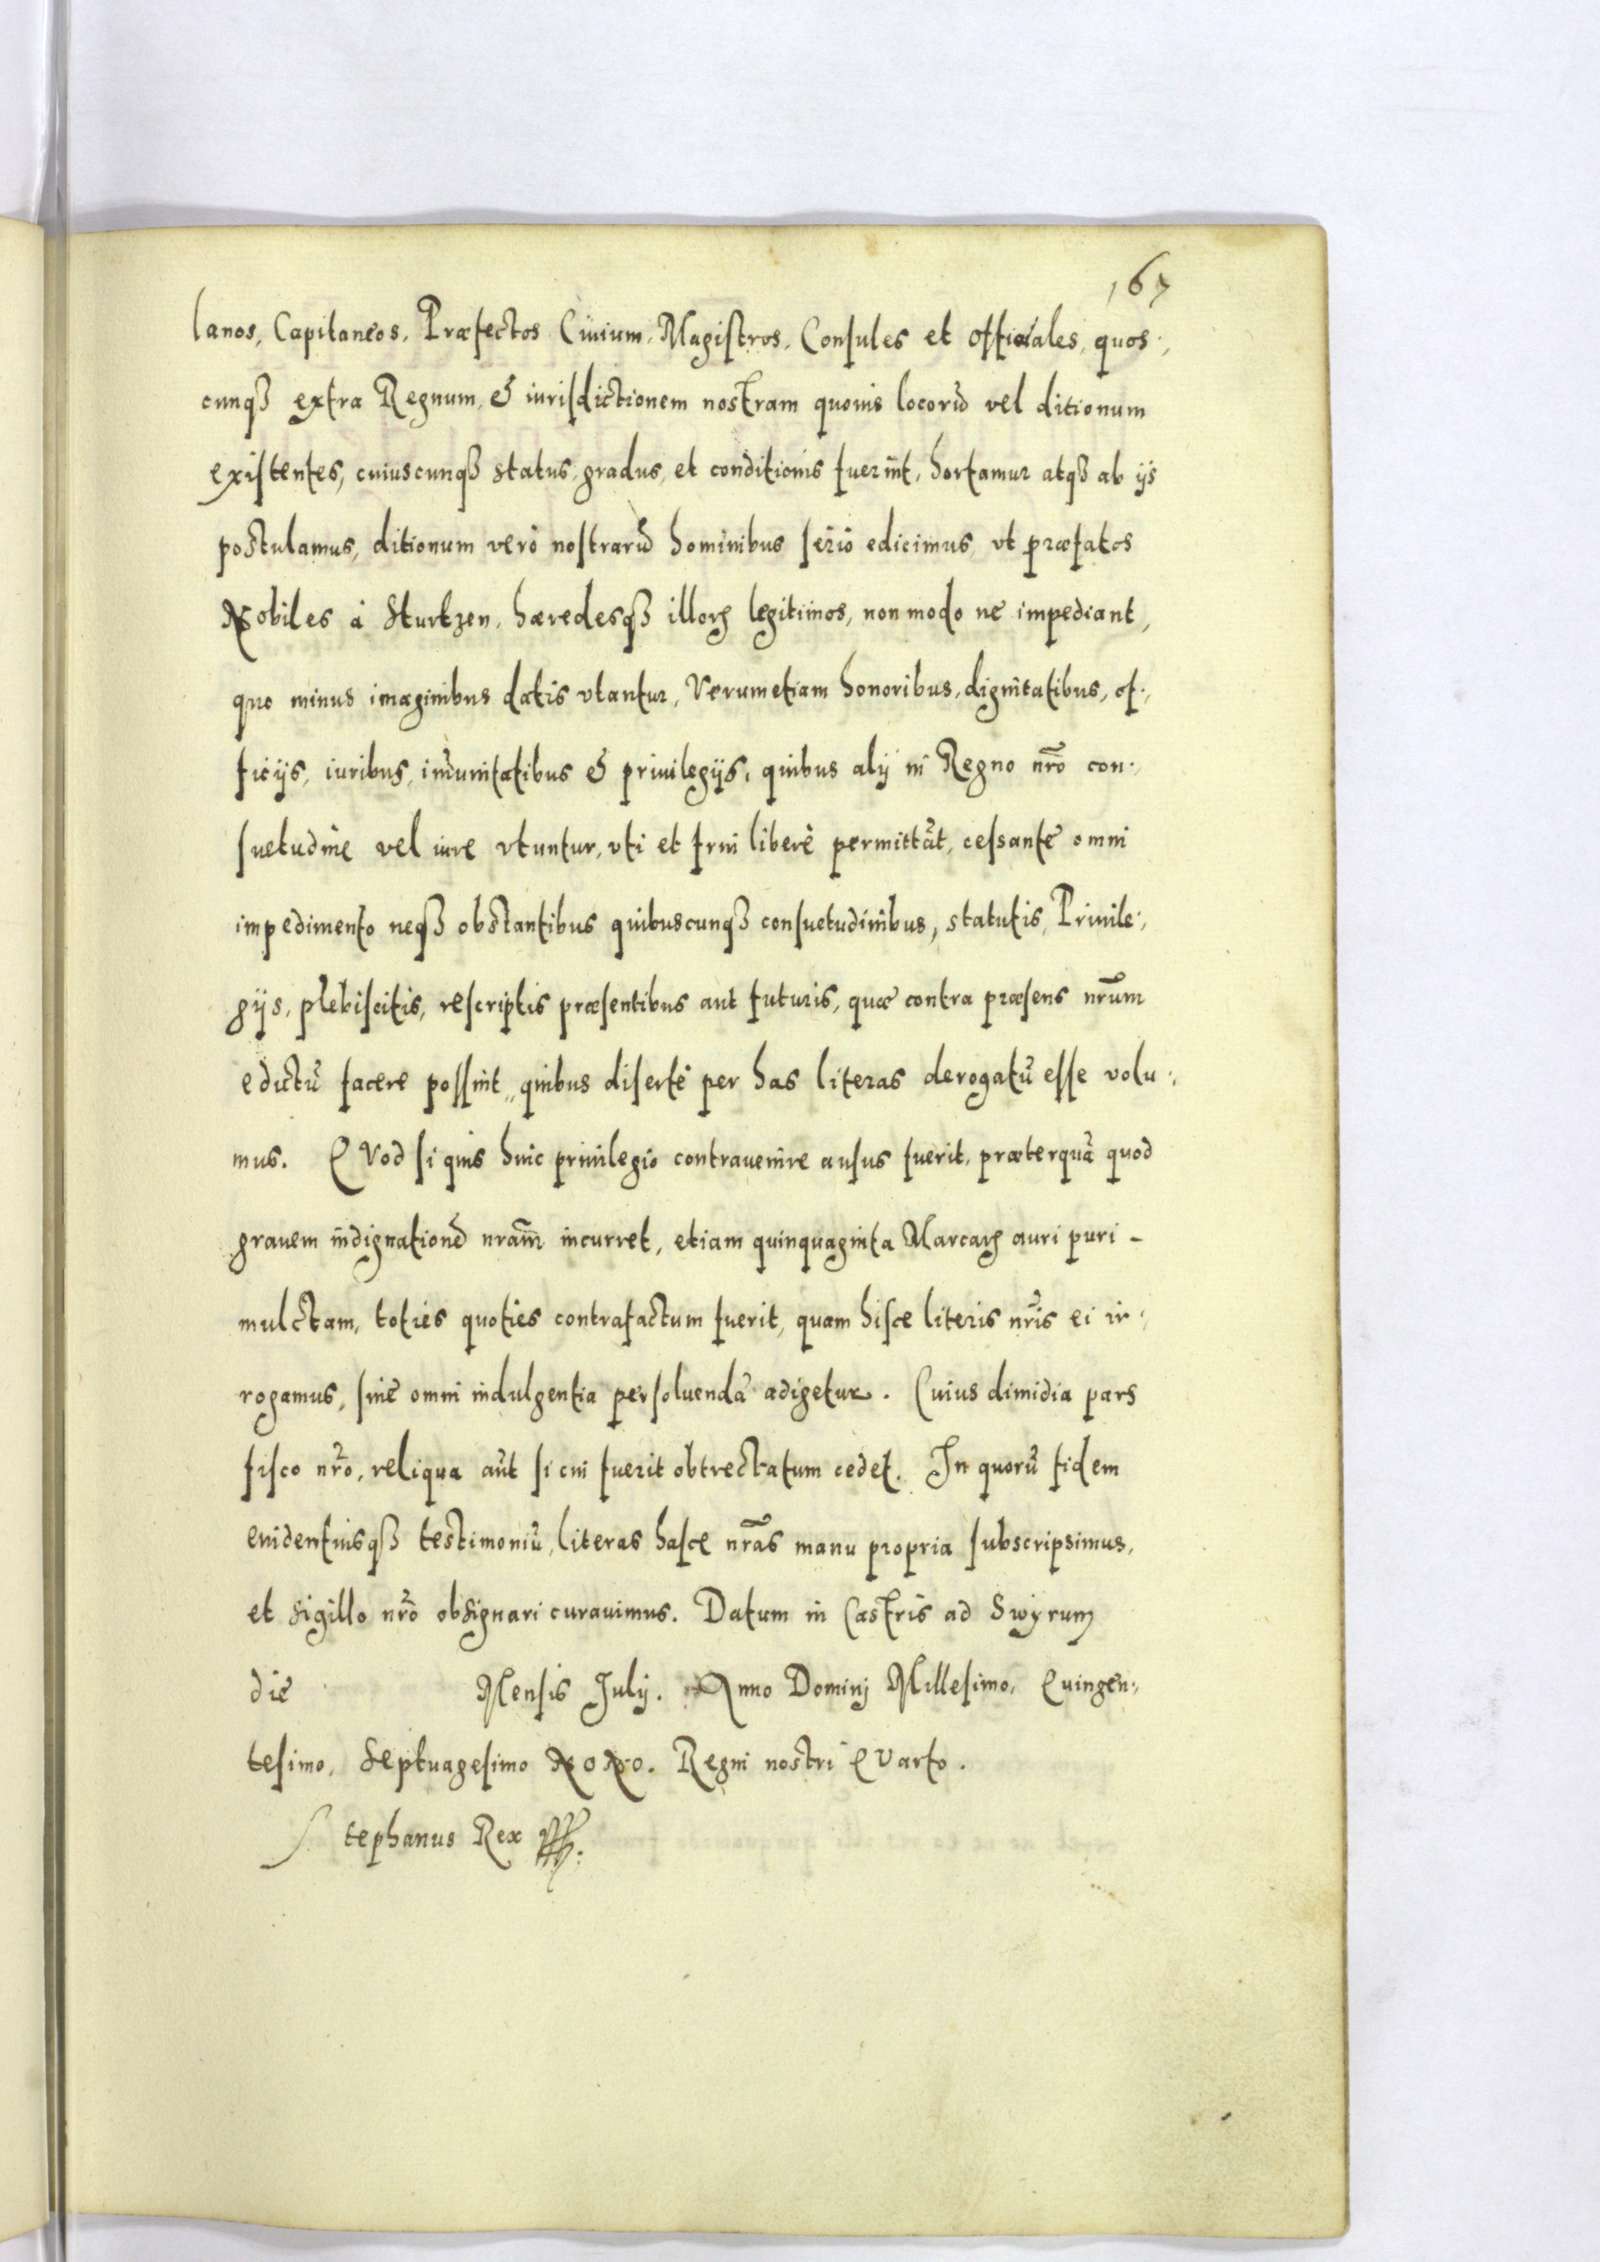 167
lanos, Capitaneos, Præfectos Ciuium, Magistros, Consules et Officiales, quos:,
cunqꝫ extra Regnum, & iurisdictionem nostram quouis locorũ vel ditionum
existentes, cuiuscunqꝫ status, gradus, et conditionis fuerint, hortamur atqꝫ ab ijs
postulamus, ditionum verò nostrarũ hominibus seriò edicimus, vt præfatos
Nobiles à Sturtzen, hæredesqꝫ illorꝫ legitimos, non modo ne impediant,
quo minus imaginibus datis vtantur, Verumetiam honoribus, dignitatibus, of:,
ficijs, iuribus, im̃unitatibus & priuilegijs, quibus alij in Regno nr̃o con:,
suetudine vel iure vtuntur, vti et frui liberè permittãt, cessante omni
impedimento neqꝫ obstantibus quibuscunqꝫ consuetudinibus, statutis, Priuile:,
gijs, plebiscitis, rescriptis præsentibus aut futuris, quæ contra præsens nr̃um
edictũ facere possint, quibus disertè per has literas derogatũ esse volu:,
mus. QVod si quis huic priuilegio contrauenire ausus fuerit, præterquã quod
grauem indignationẽ nr̃am incurret, etiam quinquaginta Marcarꝫ auri puri -
mulctam, toties quoties contrafactum fuerit, quam hisce literis nr̃is ei ir:,
rogamus, sine omni indulgentia persoluendã adigetur. Cuius dimidia pars
fisco nr̃o, reliqua aũt si cui fuerit obtrectatum cedet. In quorũ fidem
euidentiusqꝫ testimoniũ, literas hasce nr̃as manu propria subscripsimus,
et sigillo nr̃o obsignari curauimus. Datum in Castris ad Swyrum
die Mensis Julij. Anno Dominj Millesimo, Quingen:,
tesimo, Septuagesimo NoNo. Regni nostri QVarto.
Stephanus Rex